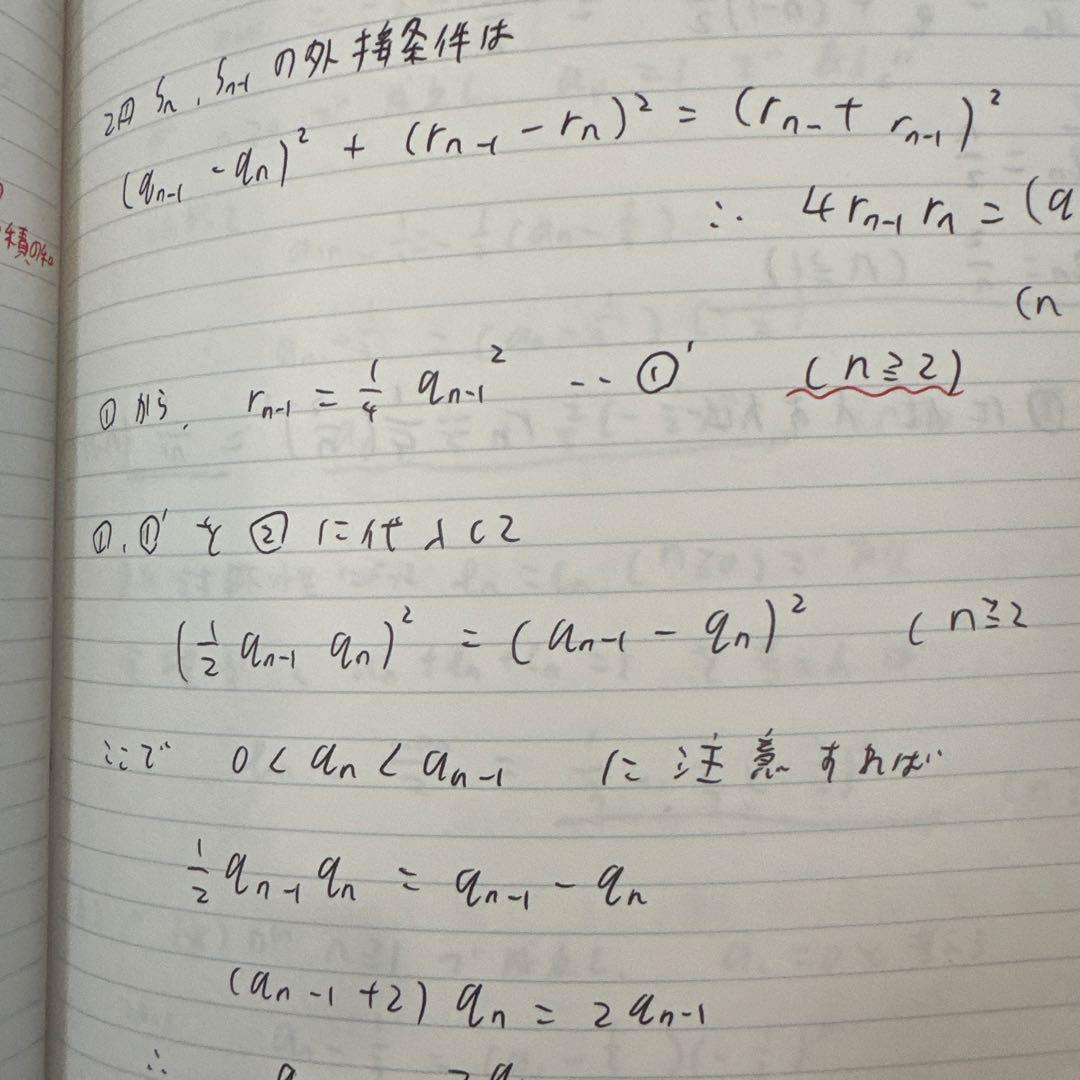 2円 Sn, Sn-1 の外接条件は
(an-1 - an)² + (rn-1 - rn)² = (rn + rn-1)²
∴ 4rn-1 rn = (a
(n
積の和
①から, rn-1 = 1/4 an-1² … ①' (n≧2)
①, ①' を ② に代入して
(1/2 an-1 an)² = (an-1 - an)² (n≧2
ここで 0 < an < an-1 に注意すれば
1/2 an-1 an = an-1 - an
(an-1 + 2) an = 2an-1
∴